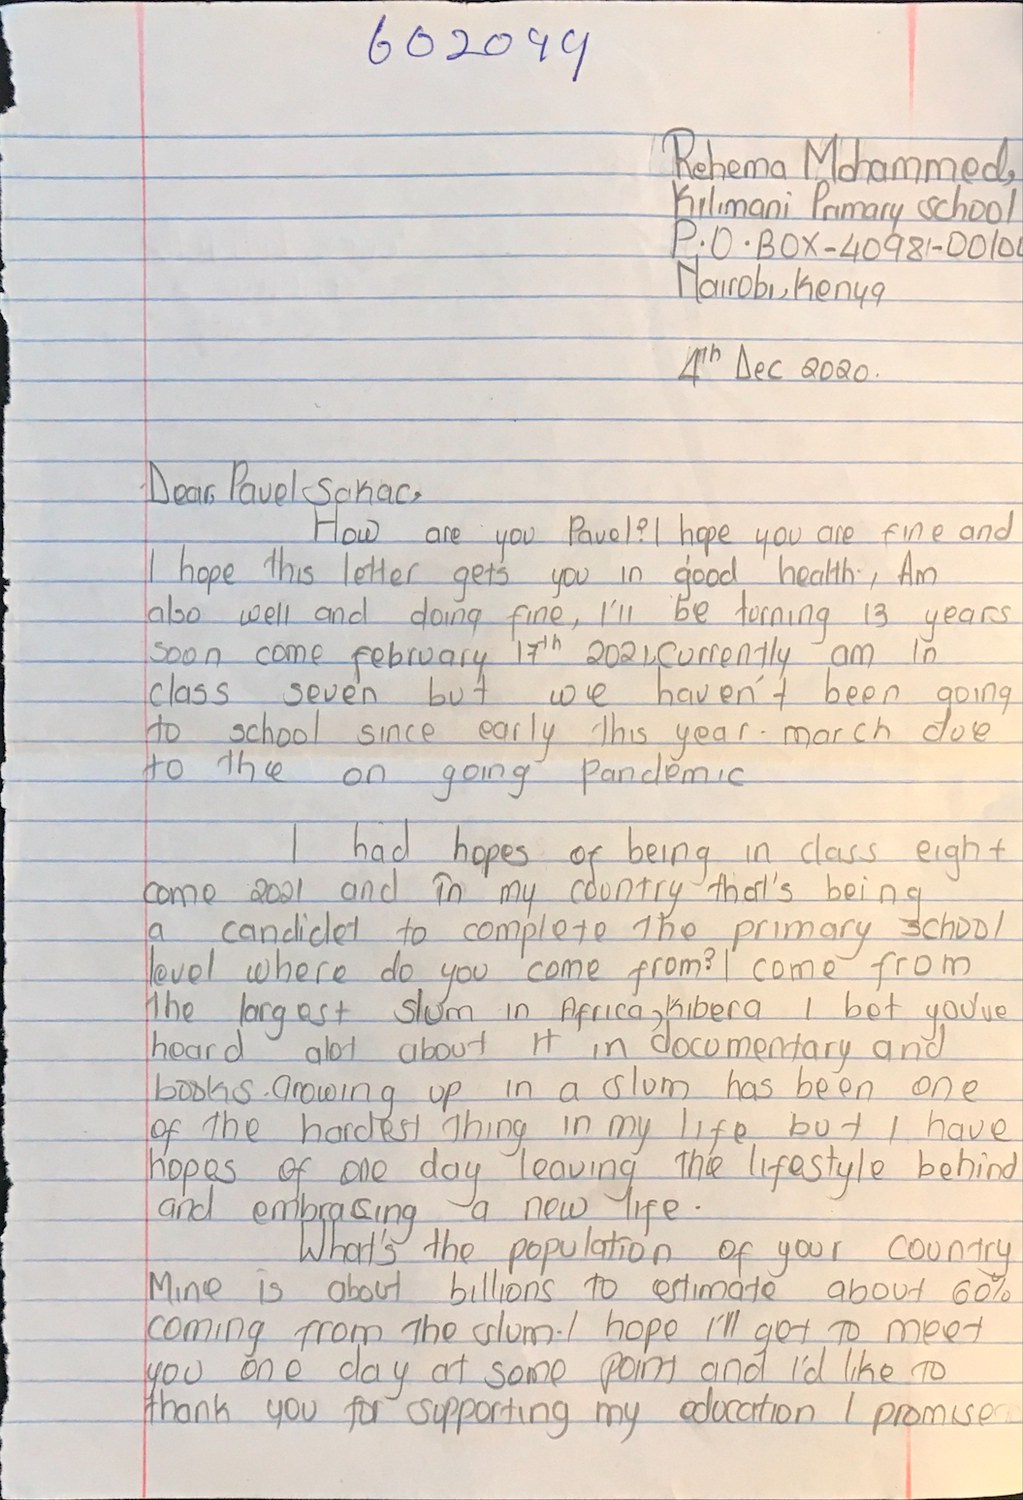 602099
Rehema Mohammed,
Kilimani Primary school
P.O.BOX-40981-0010
Nairobi, Kenya
4th Dec 2020.
Dear, Pavel
How are you Pavel? I hope you are fine and
I hope this letter gets you in good health, Am
also well and doing fine, I'll be turning 13 years
soon come february 17th 2021, Currently am in
class seven but we haven't been going
to school since early this year. march due
to the on going pandemic
I had hopes of being in class eight
come 2021 and in my country that's being
a candidet to complete the primary school
level where do you come from? I come from
the largest slum in Africa, Kibera I bet you've
heard alot about it in documentary and
books. Growing up in a slum has been one
of the hardest thing in my life but I have
hopes of one day leaving the lifestyle behind
and embrasing a new life.
What's the population of your country
Mine is about billions to estimate about 60%
coming from the slum. I hope I'll get to meet
you one day at some point and I'd like to
thank you for supporting my education I promise